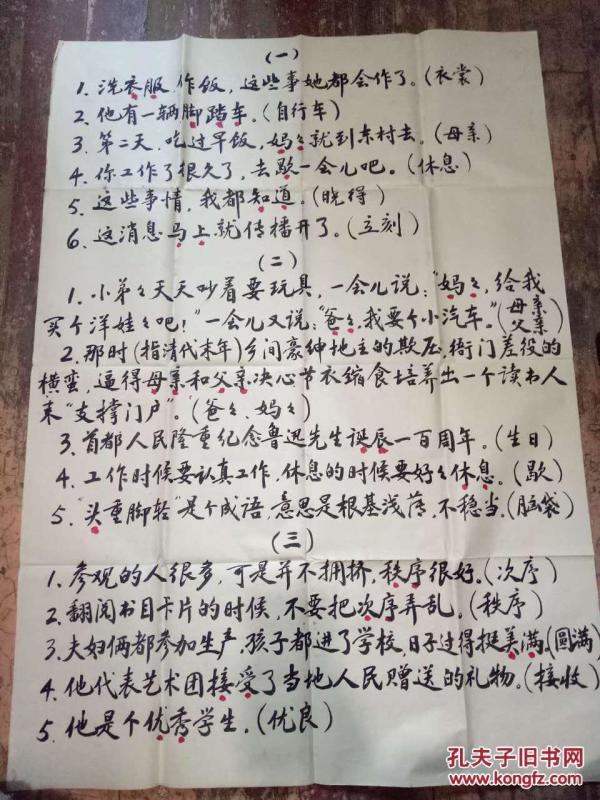 (一)
1. 洗衣服作饭，这些事她都会作了。(衣裳)
2. 他有一辆脚踏车。(自行车)
3. 第二天，吃过早饭，妈々就到东村去。(母亲)
4. 你工作了很久了，去歇一会儿吧。(休息)
5. 这些事情，我都知道。(晓得)
6. 这消息马上就传播开了。(立刻)
(二)
1. 小弟々天天吵着要玩具，一会儿说："妈々，给我
买个洋娃々吧！"一会儿又说："爸々，我要个小汽车。"(母亲
父亲)
2. 那时(指清代末年)乡间豪绅地主的欺压，衙门差役的
横蛮，逼得母亲和父亲决心节衣缩食培养出一个读书人
来"支撑门户"。(爸々、妈々)
3. 首都人民隆重纪念鲁迅先生诞辰一百周年。(生日)
4. 工作时候要认真工作，休息的时候要好々休息。(歇)
5. "头重脚轻"是个成语，意思是根基浅薄，不稳当。(脑袋)
(三)
1. 参观的人很多，可是并不拥挤，秩序很好。(次序)
2. 翻阅书目卡片的时候，不要把次序弄乱。(秩序)
3. 夫妇俩都参加生产，孩子都进了学校，日子过得挺美满。(圆满)
4. 他代表艺术团接受了当地人民赠送的礼物。(接收)
5. 他是个优秀学生。(优良)
孔夫子旧书网
www.kongfz.com